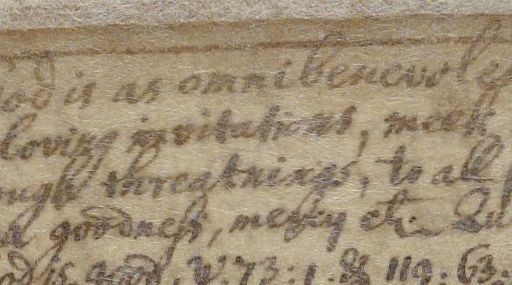 God is as omnibenevole
loving invitations, meek
ough threatnings, to all
goodness, mercy &c.
God is good, ψ. 73: 1. & 119. 63.